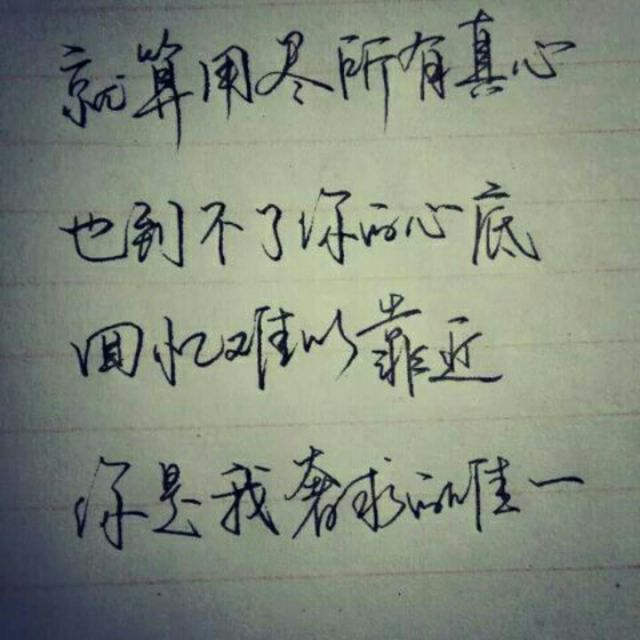 就算用尽所有真心
也到不了你的心底
回忆难以靠近
你是我奢求的唯一